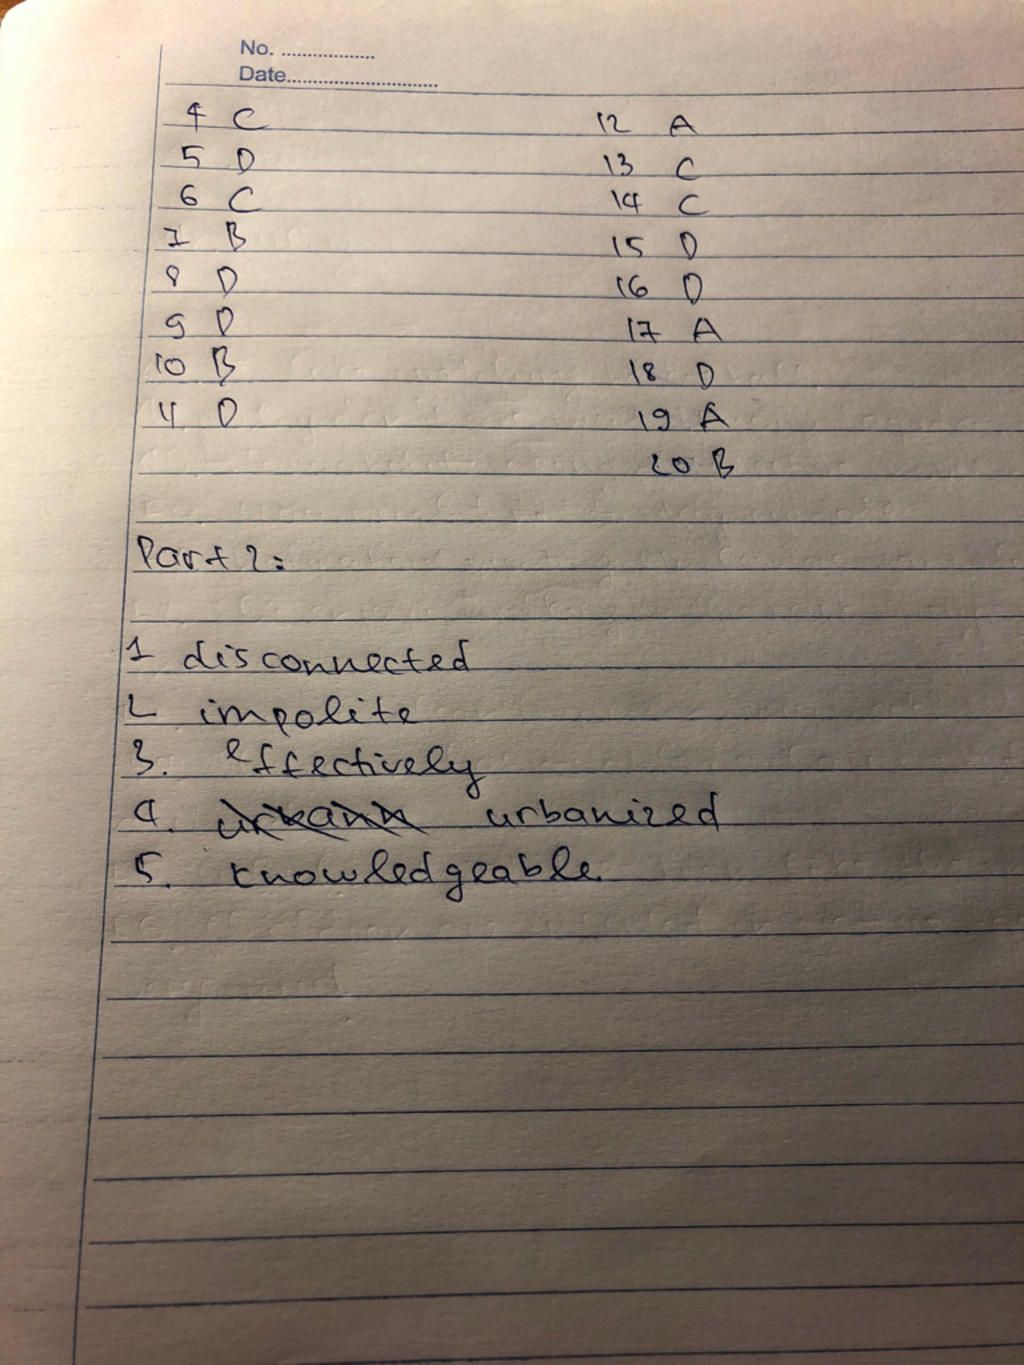 No. ..................
Date..............................
4 C
5 D
6 C
7 B
8 D
9 D
10 B
11 D
12 A
13 C
14 C
15 D
16 D
17 A
18 D
19 A
20 B
Part 2:
1 disconnected
2 impolite
3. effectively
4. urbanized
5. knowledgeable